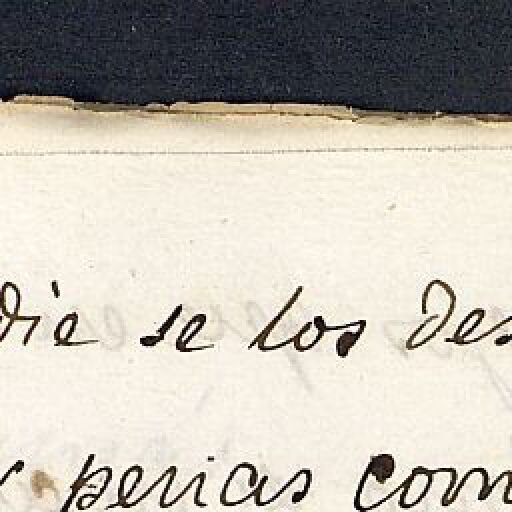 die se los des
penas com